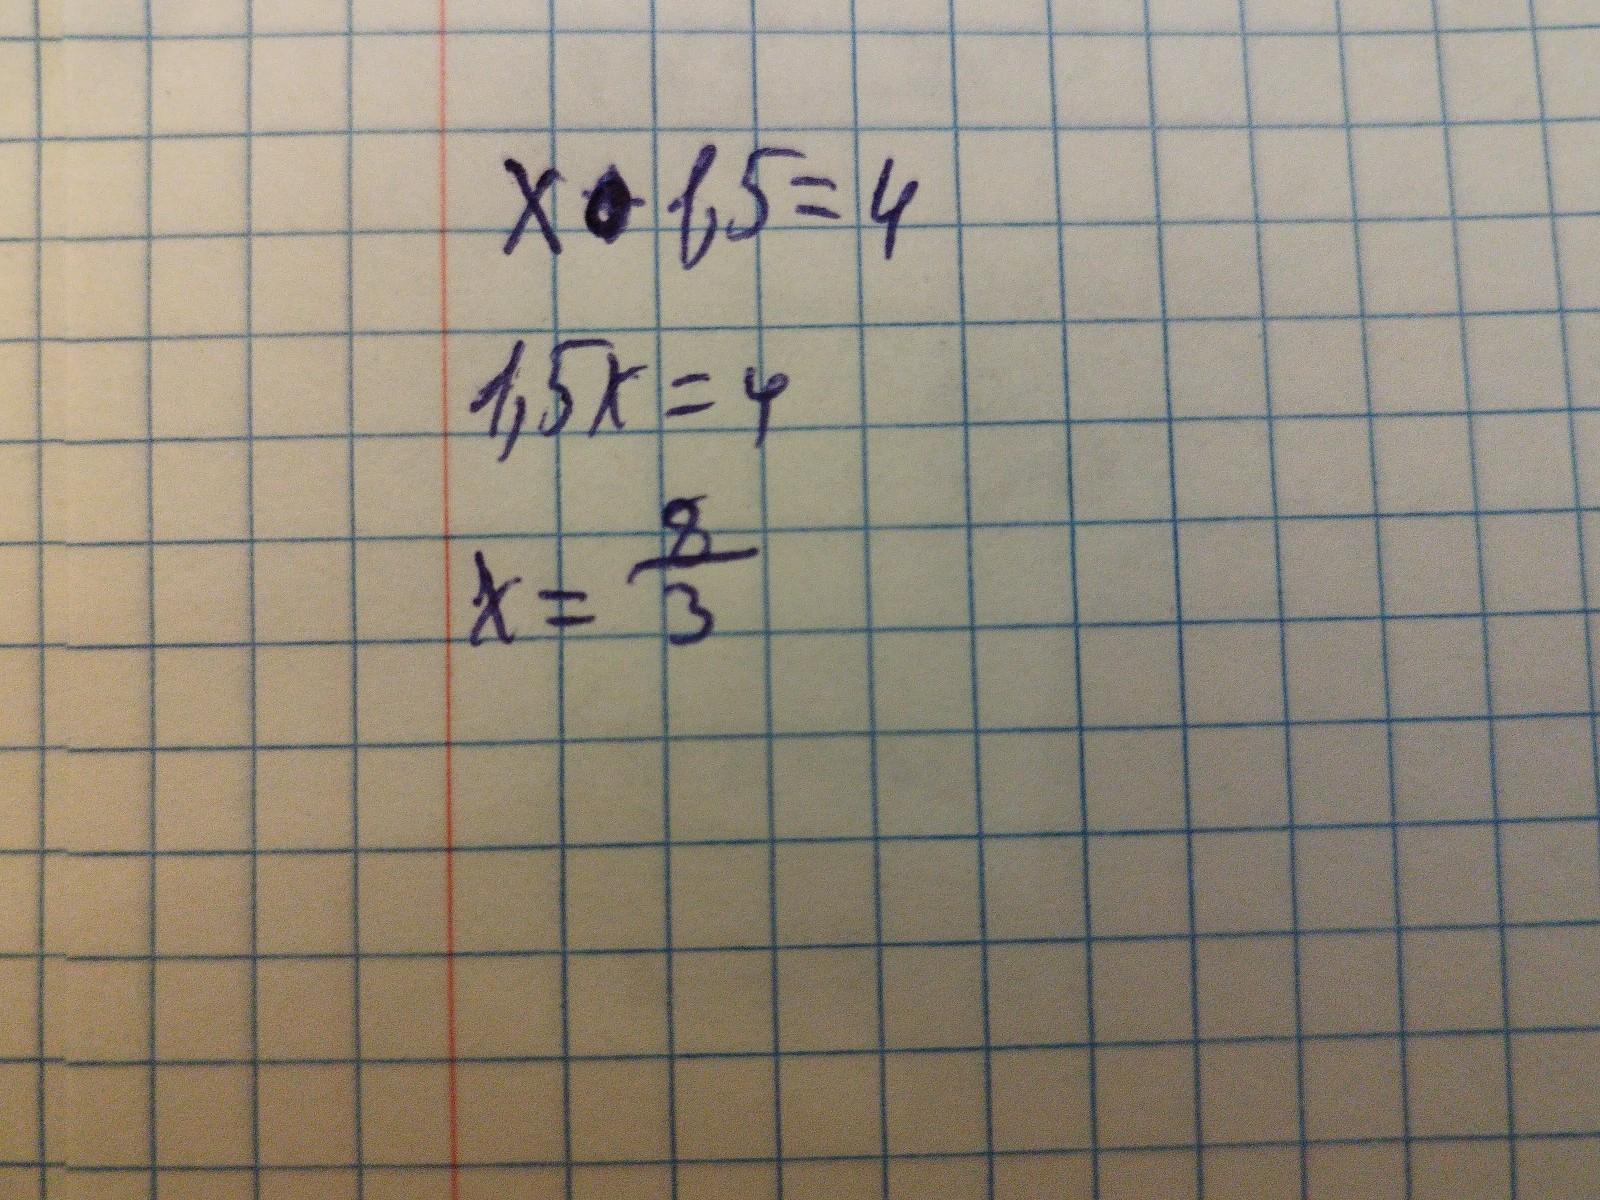 x • 1,5 = 4
1,5x = 4
x = 8/3